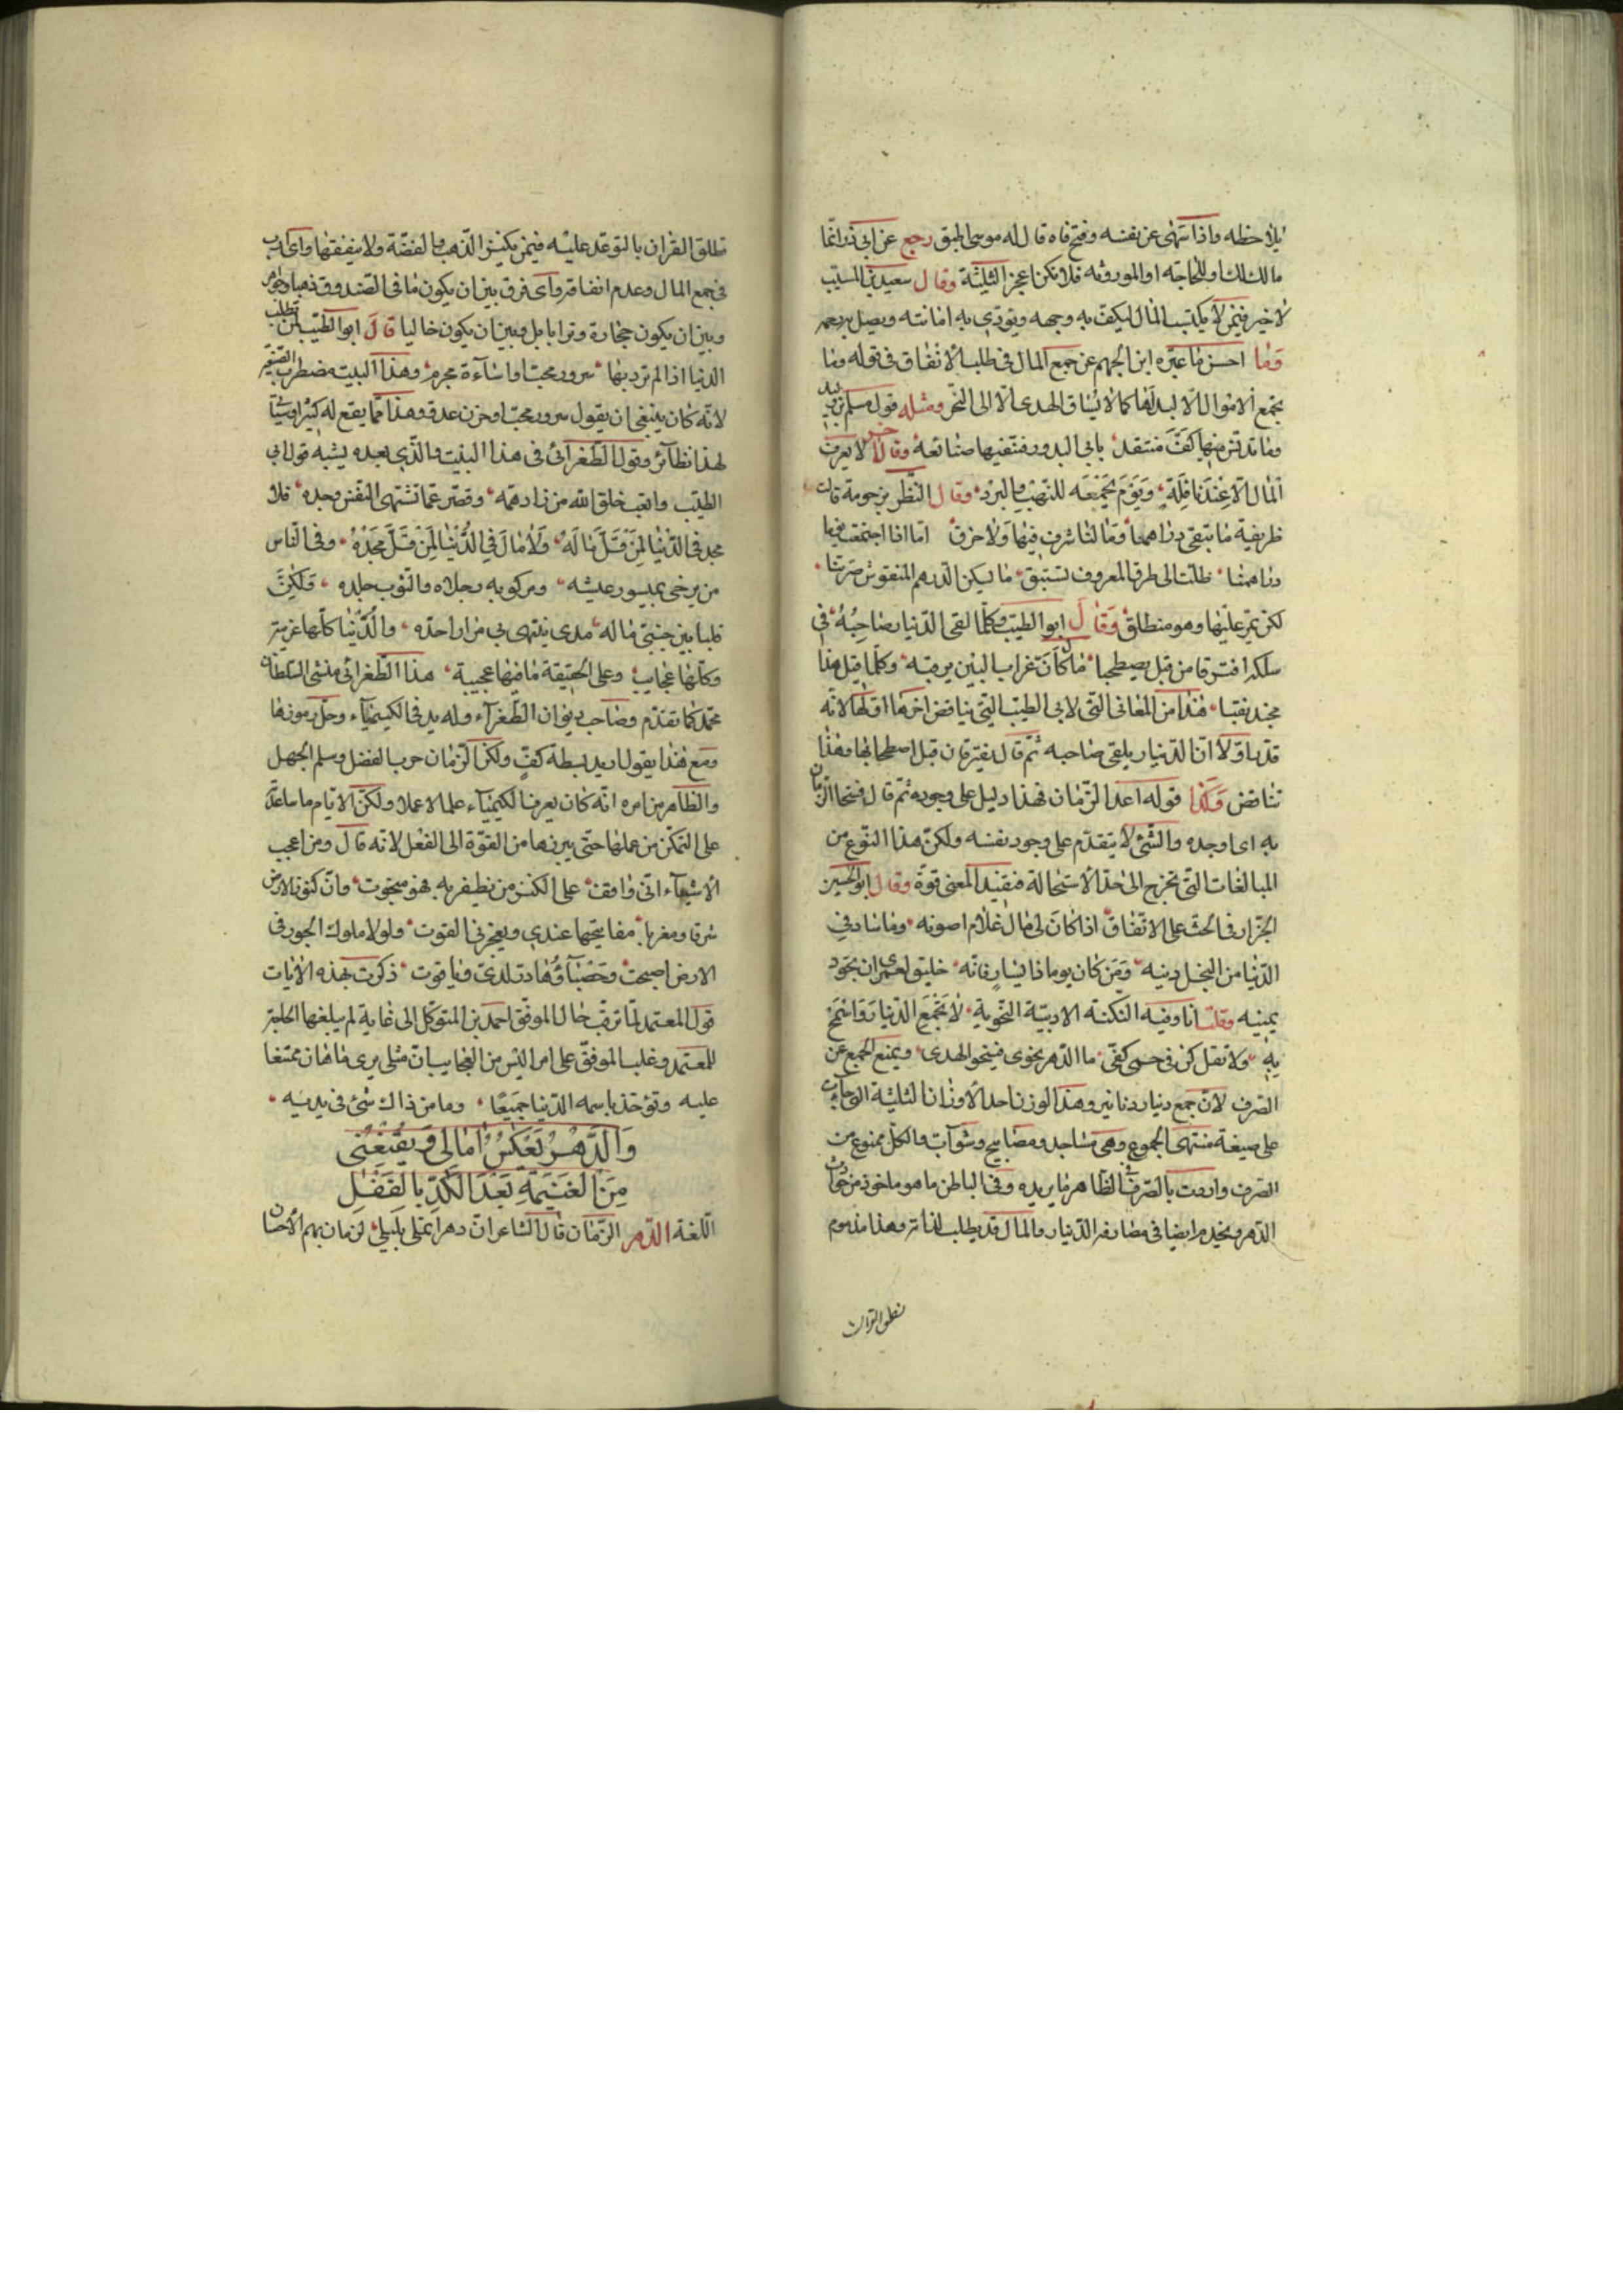 يلاحظه واذا سهى عن نفسه وفتح فاه قال له موسى اطبق رجع عن ابى ذر انما
مالك لك او للحاجة او الموروثه فلا تكن اعجز الثلثة وقال سعيد بن المسيب
لا خير فيمن لا يكتسب المال ليكف به وجهه ويودى به امانته ويصل به رحمه
وما احسن ما عبره ابن الجهم عن جمع المال فى طلب الانفاق فى قوله وما
يجمع الاموال الا لبذلها كما لا يساق الهدى الا الى النحر ومثله قول مسلم بن
منها كف منتقد باتى البدور فتفنيها صنائعه وقال اخر لا يعرف
المال الا عند نافلة ويوم يجمعه للنهب والبدد وقال النظر بن جوية قالت
ظريفة ما تبقى دراهمنا وما لنا شرف فيها ولا خرق انا اذا اجتمعت يوما
دراهمنا ظلت الى طرق المعروف تستبق ما يسكن الدرهم المنقوش صرتنا
لكن يمر عليها وهو منطلق وقال ابو الطيب وكلما لقى الدنيار صاحبه فى
ملكه افترقا من قبل يصطحبا مال كان غراب البين يرقبه وكلما قيل هذا
مجتد نعبا هذا من المعانى التى لابى الطيب التى يناقض اخرها اولها لانه
قدر اولا ان الدنيار يلقى صاحبه ثم قال يفترقان قبل اصطحابهما وهذا
تناقض وكذا قوله اعدا الزمان فهذا دليل على وجوده ثم قال فسخا الزمان
به اى اوجده والشئ لا يتقدم على وجود نفسه ولكن هذا النوع من
المبالغات التى تخرج الى حد الاستحالة فتفيد المعنى قوة وقال ابو الحسين
الجزار فى الحث على الانفاق اذا كان لى مال علام اصونه وما ساد فى
الدنيا من البخل دينه ومن كان يوما ذا يسار فانه خليق لعمرى ان تجود
يمينه وقلت انا وفيه النكتة الادبية النحوية لا تجمع الدنيار واسمح
به ولا تقل كن فى حمى كفى ما الدهر نحوى فينحو الهدى ويمنع الجمع من
الصرف لان جمع دنيار دنانير وهذا الوزن احد الاوزان الثلثة التى جاءت
على صيغة منتهى الجموع وهى مساجد ومصابيح وشوآب والكل ممنوع من
الصرف واردت بالصرف فى الظاهر ما يريده وفى الباطن ما هو ماخوذ من
الدهر ويخدم ايضا فى مصارفه الدنيار والمال قد يطلب لذاته وهذا مذموم
نطق القرآن
نطلق القران بالتوعد عليه فيمن يكنز الذهب والفضة ولا ينفقها واى ذنب
فى جمع المال وعدم انفاقه واى فرق بين ان يكون ما فى الصندوق ذهبا وجوهر
وبين ان يكون حجارة وترابا بل وبين ان يكون خاليا قال ابو الطيب لمن تطلب
الدنيا اذا لم ترد بها سرور محب او اساءة مجرم وهذا البيت مضطرب
لانه كان ينبغى ان يقول سرور محب او حزن عدو وهذا مما يقع له كثيرا
لهذا نظائر وقول الطغرائى فى هذا البيت والذى بعده يشبه قول ابى
الطيب واتعب خلق الله من زاد همه وقصر عما تشتهى النفس وجده فلا
مجد فى الدنيا لمن قل ماله ولا مال فى الدنيا لمن قل مجده وفى الناس
من يرضى بميسور عيشه ومركوبه رجلاه والثوب جلده ولكن
قلبا بين جنبى ماله مدى ينتهى بى من اراد احده والدنيا كلها غريبة
وكلها عجايب وعلى الحقيقة ما فيها عجيبة هذا الطغرائى منشى السلطان
محمد كما تقدم وصاحب ديوان الطغراء وله يد فى الكيمياء وحل رموزها
ومع هذا يقول اريد بسطة كف ولكن الزمان حرب الفضل وسلم الجهل
والظاهر من امره انه كان يعرف الكيمياء علما لا عملا ولكن الايام ما ساعدته
على التمكن من عملها حتى يبرزها من القوة الى الفعل لانه قال ومن اعجب
الاشياء انى واقف على الكنز من يظفر به فهو مبخوت وان كنوز الارض
شرقا ومغربا مفاتيحها عندى ويعجزنى القوت ولولا ملوك الجور فى
الارض اصبحت وحصباؤها در لدى وياقوت ذكرت بهذه الابيات
قول المعتمد لما ترقت حال الموفق احمد بن المتوكل الى غاية لم يبلغها الخليفة
المعتمد وغلب الموفق على امر اليس من العجايب ان مثلى يرى ما هان ممتنعا
عليه وتؤخذ باسمه الدنيا جميعا وما من ذاك شئ فى يديه
وَالدَّهْرُ يَعْكِسُ آمَالِى وَيُقْنِعُنِى
مِنَ الْغَنِيمَةِ بَعْدَ الْكَدِّ بِالْقَفَلِ
اللغة الدهر الزمان قال الشاعر ان دهرا يلف شملى بليلى لزمان يهم بالاحسان